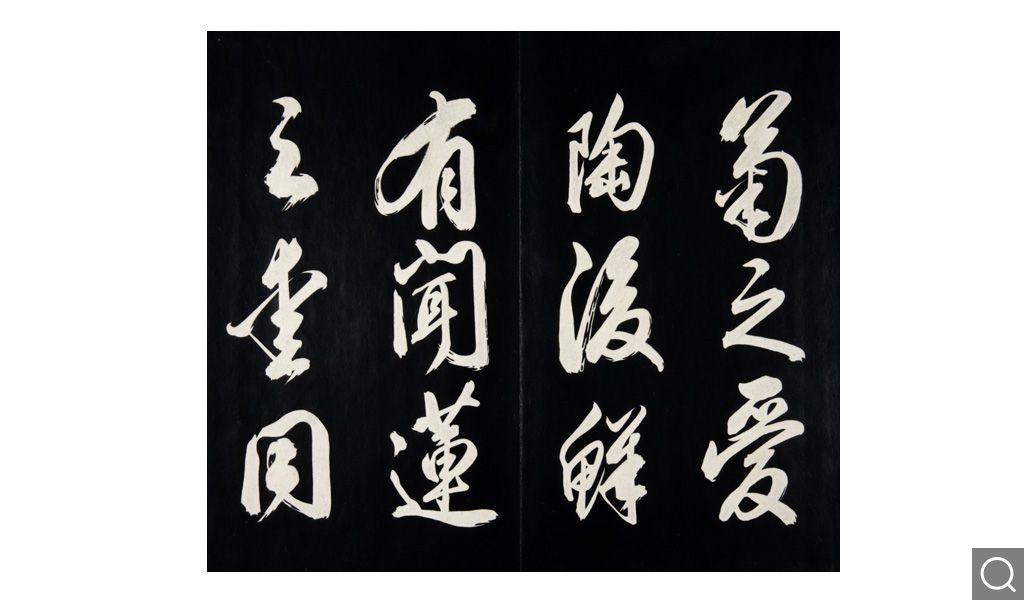 菊之愛
陶後鮮
有聞蓮
之愛同